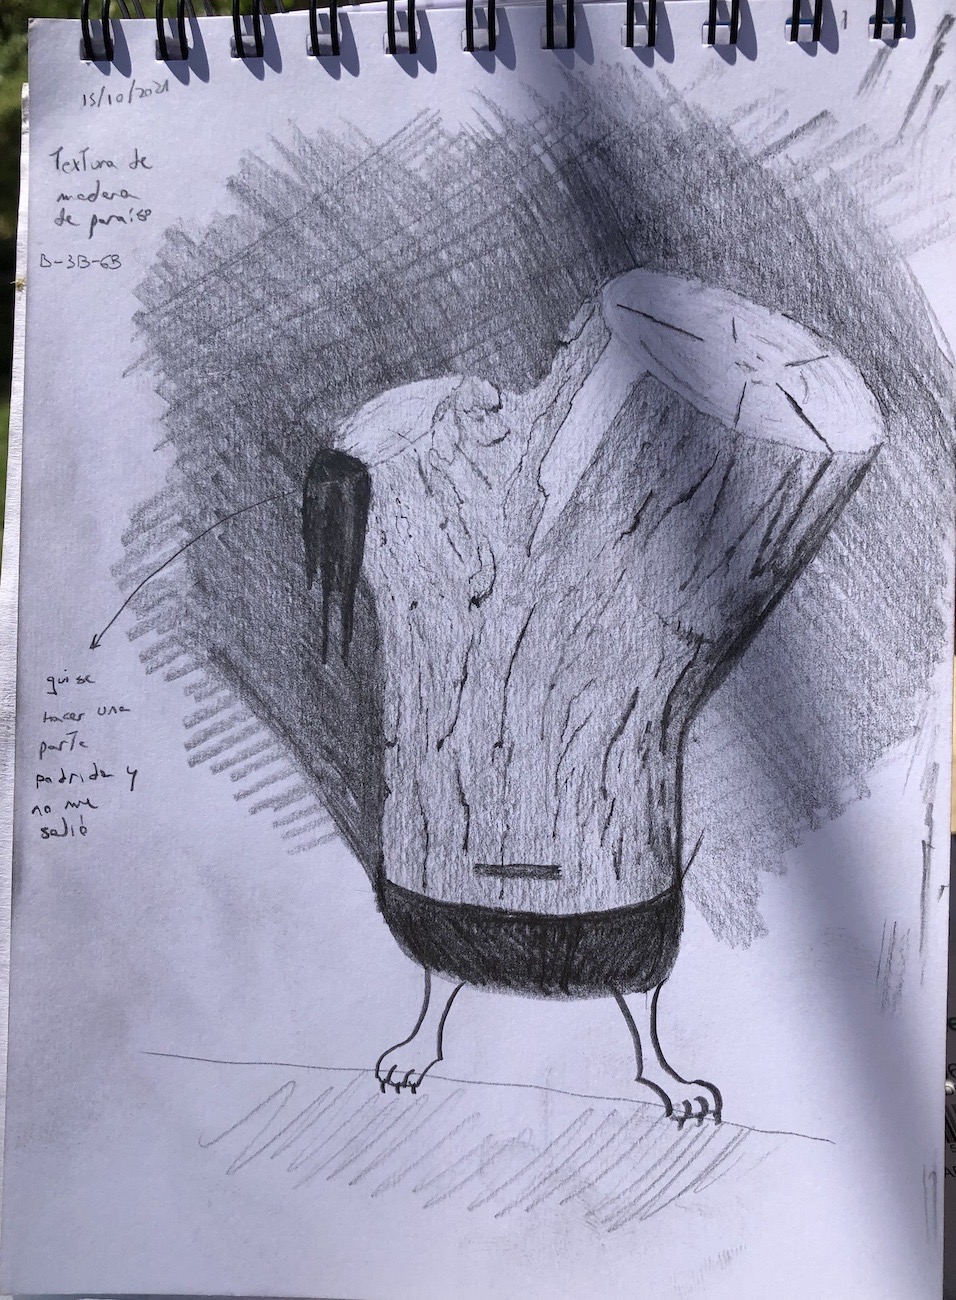 15/10/2021
Textura de
madera
de paraíso
B-3B-6B
quise
hacer una
parte
podrida y
no me
salió